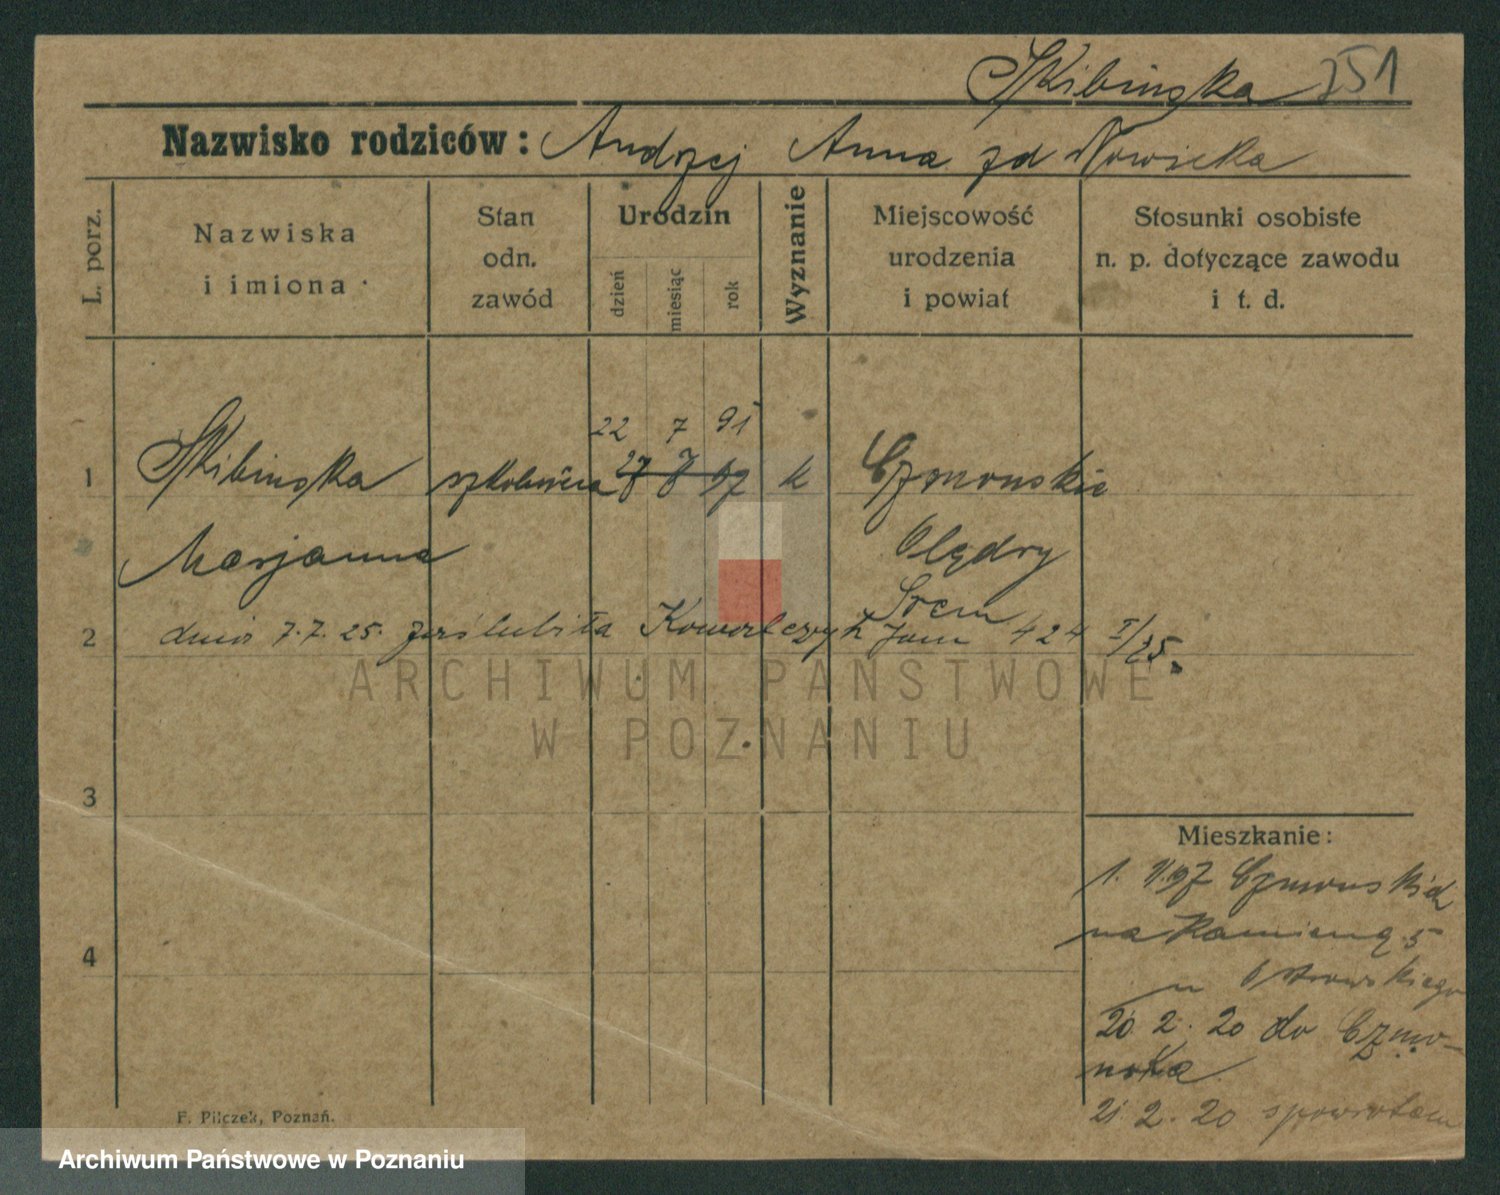 Skibinska 751
Nazwisko rodziców: Andrzej Anna zd Nowicka
L. porz.
Nazwiska
i imiona
Stan
odn.
zawód
Urodzin
dzień
miesiąc
rok
Wyznanie
Miejscowość
urodzenia
i powiat
Stosunki osobiste
n. p. dotyczące zawodu
i t. d.
22 7 91
1 Skibinska 27 7 97 k Czmonskie
Marjanna Olędry
Śrem
2 dnia 7.7.25. zaślubiła Kowalczyk Jan 424 I/25.
ARCHIWUM PAŃSTWOWE
W POZNANIU
3
Mieszkanie:
1. 97 Czmonskid
na Kamieną 5
4
u Ostrowskiego
20. 2. 20 do Czmo-
nka
21. 2. 20 spowrotem
F. Pilczek, Poznań.
Archiwum Państwowe w Poznaniu